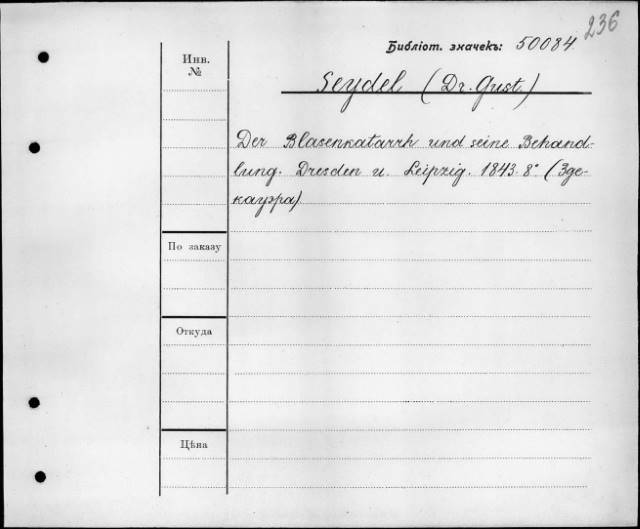 236
Библіот. значекъ: 50084
Инв. №
Seydel (Dr. Gust.)
Der Blasenkatarrh und seine Behand-
lung. Dresden u. Leipzig. 1843. 8° (Зде-
кауэра)
По заказу
Откуда
Цѣна